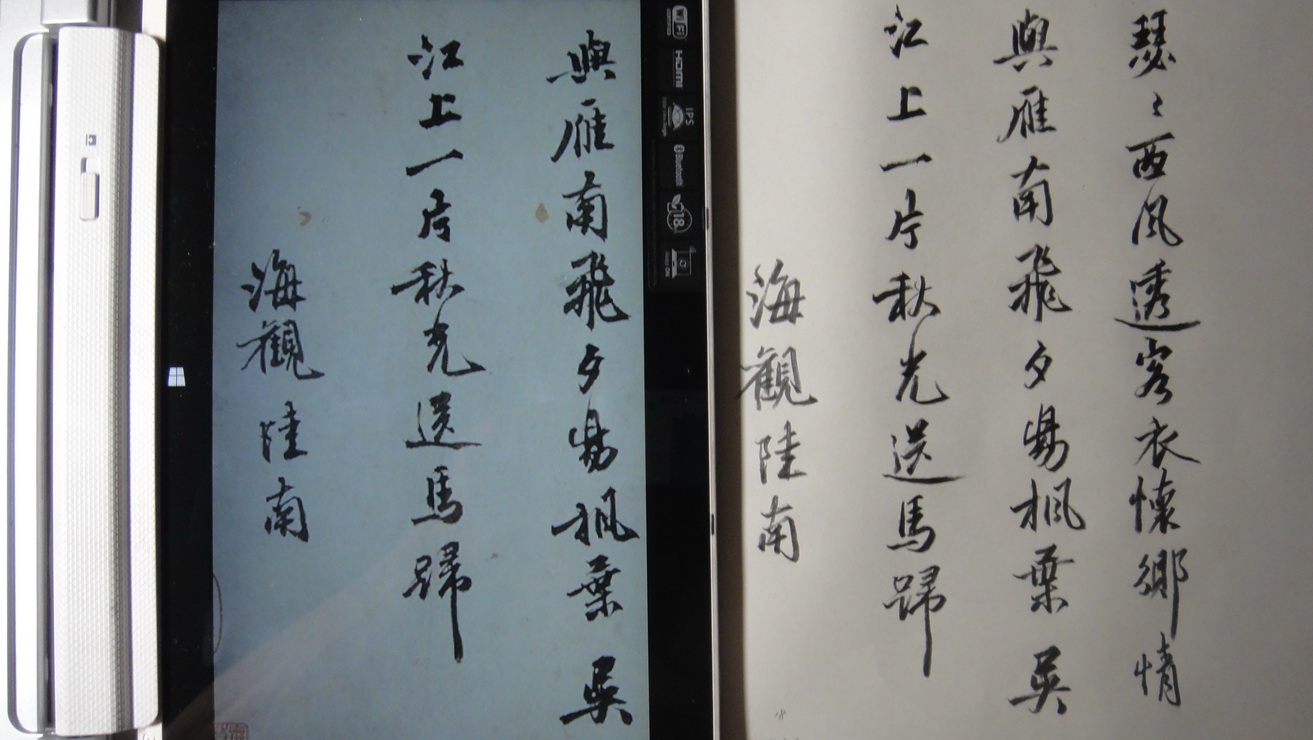 瑟〻西風透客衣懷鄉情
與雁南飛夕昜楓葉吳
江上一片秋光送馬歸
海觀陸南
WiFi
HDMI
IPS
Bluetooth
18
與雁南飛夕昜楓葉吳
江上一片秋光送馬歸
海觀陸南